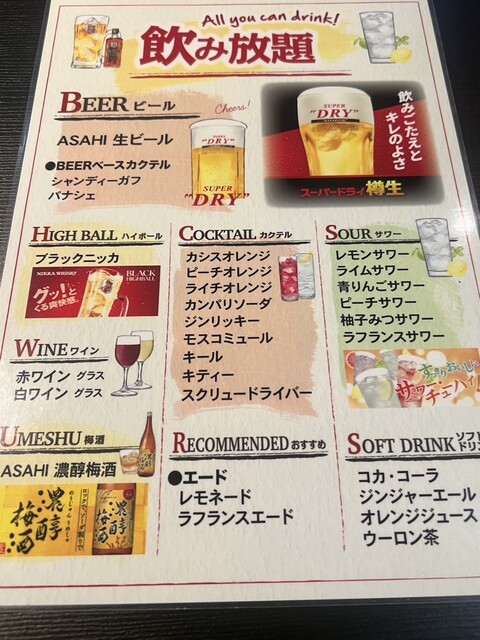 All you can drink!
飲み放題
BEER ビール
Cheers!
ASAHI 生ビール
●BEERベースカクテル
シャンディーガフ
パナシェ
SUPER
"DRY"
SUPER
"DRY"
SUPER
"DRY"
飲みごたえと
キレのよさ
スーパードライ樽生
HIGH BALL ハイボール
ブラックニッカ
NIKKA WHISKY
グッ!と
くる爽快感。
BLACK
HIGHBALL
WINE ワイン
赤ワイン グラス
白ワイン グラス
UMESHU 梅酒
ASAHI 濃醇梅酒
濃醇
梅酒
のうじゅんうめしゅ
ロックで、ソーダ割りで
濃醇
梅酒
COCKTAIL カクテル
カシスオレンジ
ピーチオレンジ
ライチオレンジ
カンパリソーダ
ジンリッキー
モスコミュール
キール
キティー
スクリュードライバー
RECOMMENDED おすすめ
●エード
レモネード
ラフランスエード
SOUR サワー
レモンサワー
ライムサワー
青りんごサワー
ピーチサワー
柚子みつサワー
ラフランスサワー
すっきりおいしい
サワー・
チューハイ!
SOFT DRINK ソフト
ドリン
コカ・コーラ
ジンジャーエール
オレンジジュース
ウーロン茶